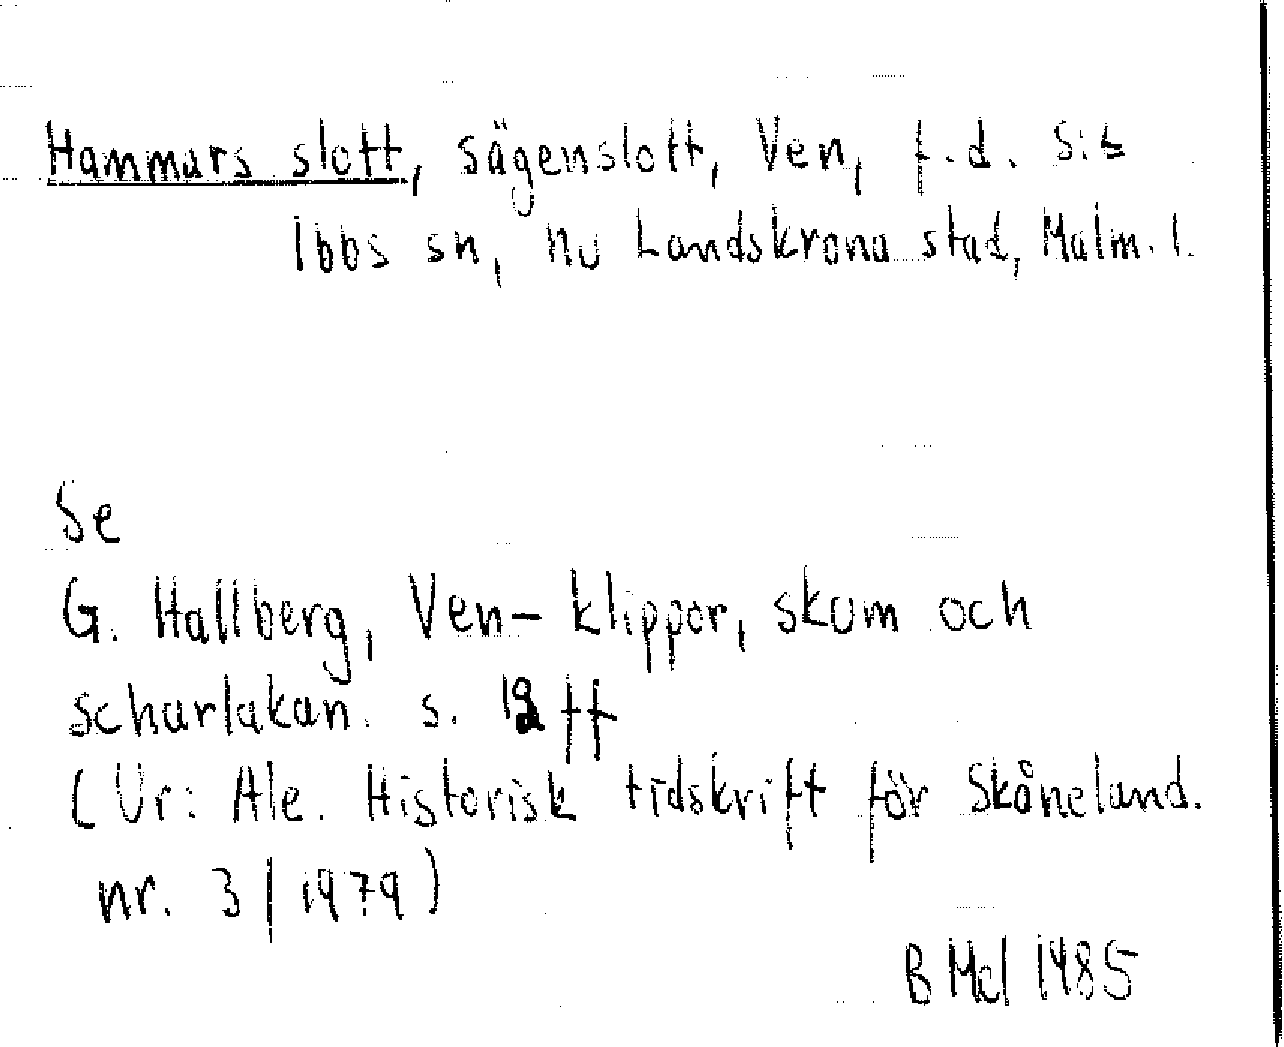 Hammars slott, sägenslott, Ven, f.d. S:t
Ibbs sn, nu Landskrona stad, Malm. l.
Se
G. Hallberg, Ven - klippor, skum och
scharlakan. s. ff
(Ur: Ale. Historisk tidskrift för Skåneland.
nr. 3/1979)
B Mcl 1985